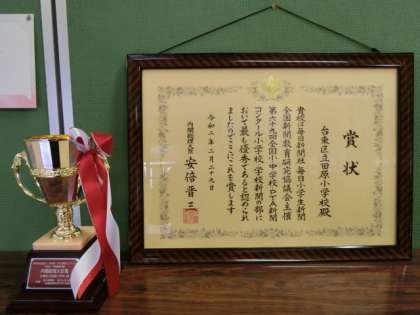 賞状
台東区立田原小学校殿
貴校は毎日新聞社 毎日小学生新聞
全国新聞教育研究協議会主催
第六十九回全国小・中学校・PTA新聞
コンクール小学校・学校新聞の部に
おいて最も優秀であると認められ
ましたのでここにこれを賞します
令和二年二月二十九日
内閣総理大臣 安倍晋三